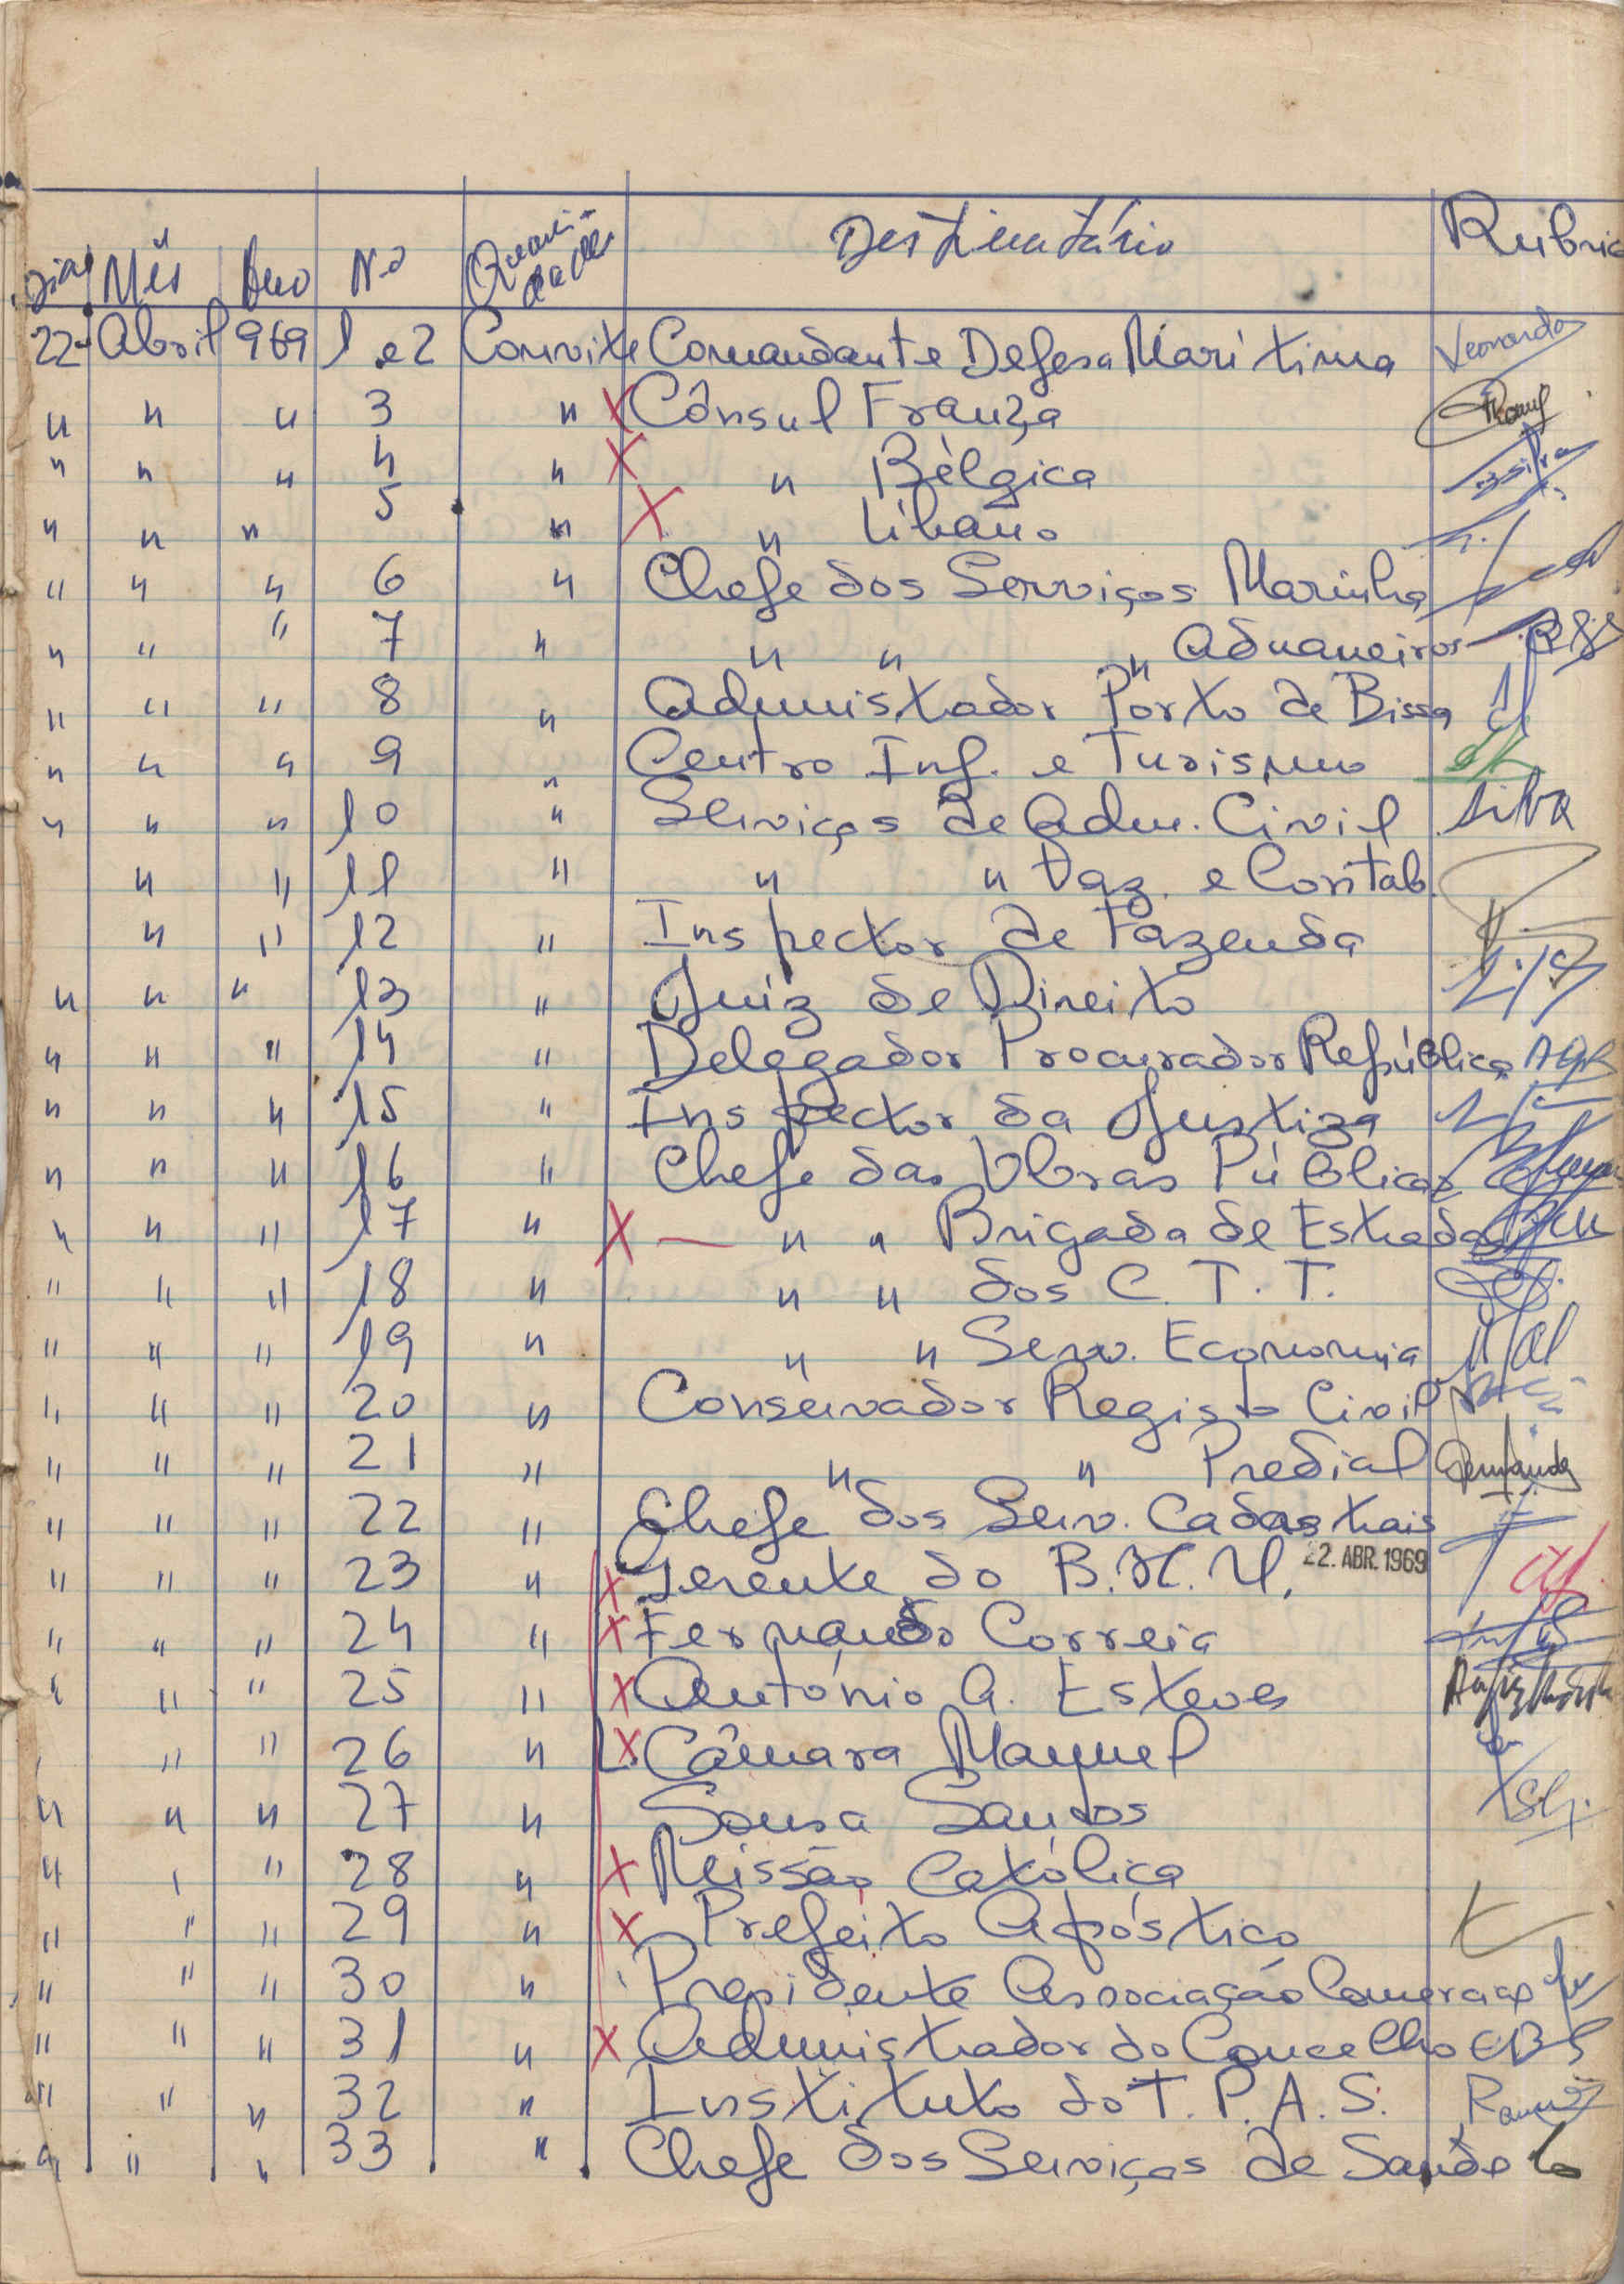 Dias Mês Ano Nº Quanti-dades Destinatário Rubric
22 Abril 969 1 e 2 Convite Comandante Defesa Marítima Leonardo
" " " 3 " X Cônsul França
" " " 4 " X " Bélgica Silva
" " " 5 " X " Líbano
" " " 6 " Chefe dos Serviços Marinha
" " " 7 " " " " Aduaneiros
" " " 8 " Admistrador Porto de Bissa
" " " 9 " Centro Inf. e Turismo
" " " 10 " Serviços de Adm. Civil Silva
" " 11 " " " Faz. e Contab.
" " 12 " Inspector de Fazenda
" " " 13 " Juiz de Direito
" " " 14 " Delegador Procurador República
" " " 15 " Inspector da Justiza
" " " 16 " Chefe das Obras Públicas
" " " 17 " X — " " Brigada de Estradas
" " " 18 " " " dos C. T. T.
" " " 19 " " " Serv. Economia
" " " 20 " Conservador Registo Civil
" " " 21 " " " Predial
" " " 22 " Chefe dos Serv. Cadastrais
" " " 23 " X Gerente do B. N. U. 22. ABR. 1969
" " " 24 " X Fernando Correia
" " " 25 " X António A. Esteves
" " 26 " X Câmara Manuel
" " " 27 " Sousa Santos
" " " 28 " X Missão Católica
" " " 29 " X Prefeito Apóstico
" " " 30 " Presidente Associação Comercial
" " " 31 " X Admistrador do Concelho
" " " 32 " Instituto do T. P. A. S.
" " " 33 " Chefe dos Serviços de Saúde